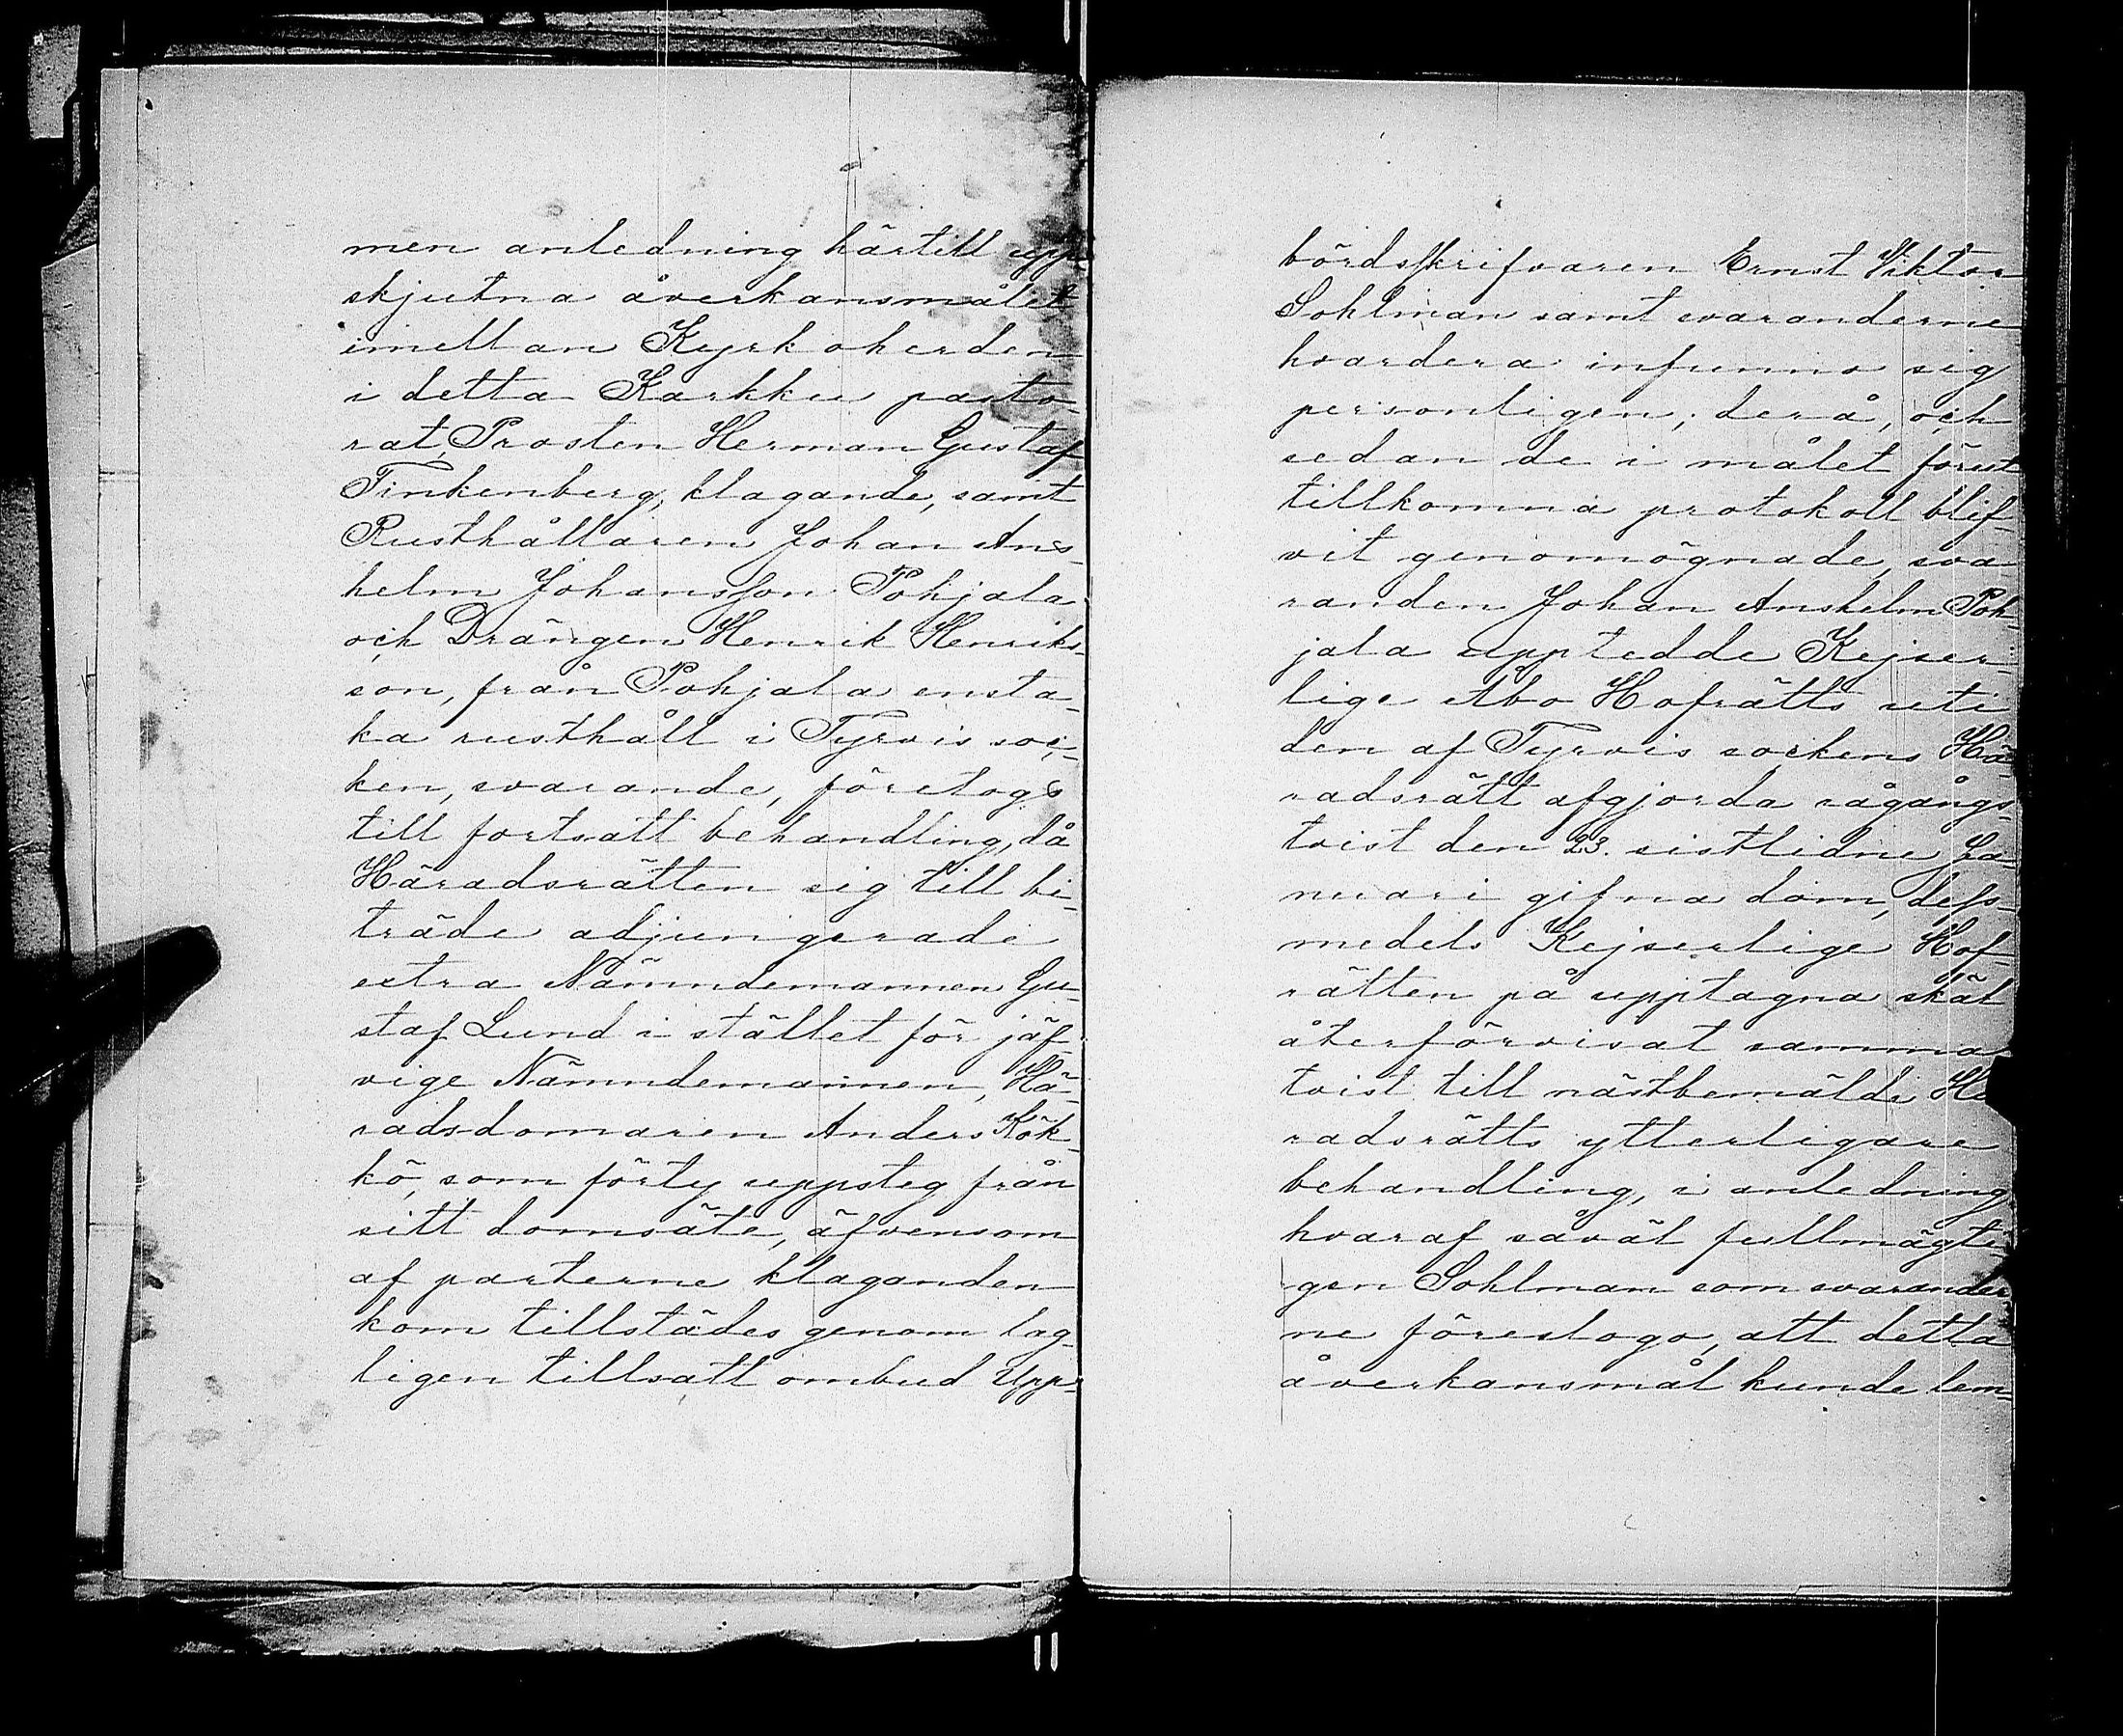 men anledning härtill upp-
skjutna åverkansmålet
imellan Kyrkoherden
i detta Karkku pasto-
rat, Prosten Herman Gustaf
Tinkenberg, klagande, samt
Rusthållaren Johan Ans-
helm Johansson Pohjala
och Drängen Henrik Henriks-
son, från Pohjala ensta-
ka rusthåll i Tyrvis soc-
ken, svarande, företogs
till fortsatt behandling, då
Häradsrätten sig till bi-
träde adjungerade
extra Nämndemannen Gu-
staf Lund i stället för jäf-
vige Nämndemannen, Hä-
radsdomaren Anders Kök-
kö, som förty uppsteg från
sitt domsäte, äfvensom
af parterne klaganden
kom tillstädes genom lag-
ligen tillsatt ombud Upp-
bördsskrifvaren Ernst Viktor
Sohlman samt svaranderne
hvardera infunno sig
personligen; derå, och
sedan de i målet förut
tillkomna protokoll blif-
vit genomögnade, sva-
randen Johan Anshelm Poh-
jala upptedde Kejser-
lige Abo Hofrätts uti
den af Tyrvis sockens Hä-
radsrätt afgjorda rågångs-
tvist den 23. sistlidne Ja-
nuari gifna dom, dess-
medels Kejserlige Hof-
rätten på upptagna skäl
återförvisat samma
tvist till nästbemälde Hä
radsrätts ytterligare
behandling, i anledning
hvaraf såväl fullmägti-
gen Sohlman som svarander-
ne föreslogo, att detta
åverkansmål kunde lem-